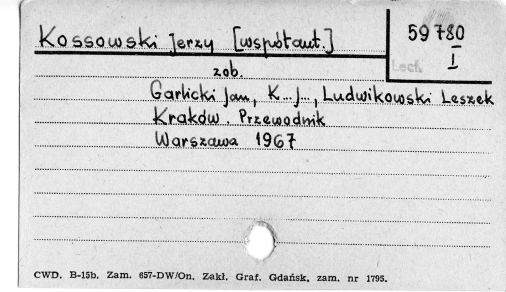 Kossowski Jerzy [współaut.]
59780
I
Lech.
zob.
Garlicki Jan, K... J..., Ludwikowski Leszek
Kraków. Przewodnik
Warszawa 1967
CWD. B-15b. Zam. 657-DW/On. Zakł. Graf. Gdańsk, zam. nr 1795.